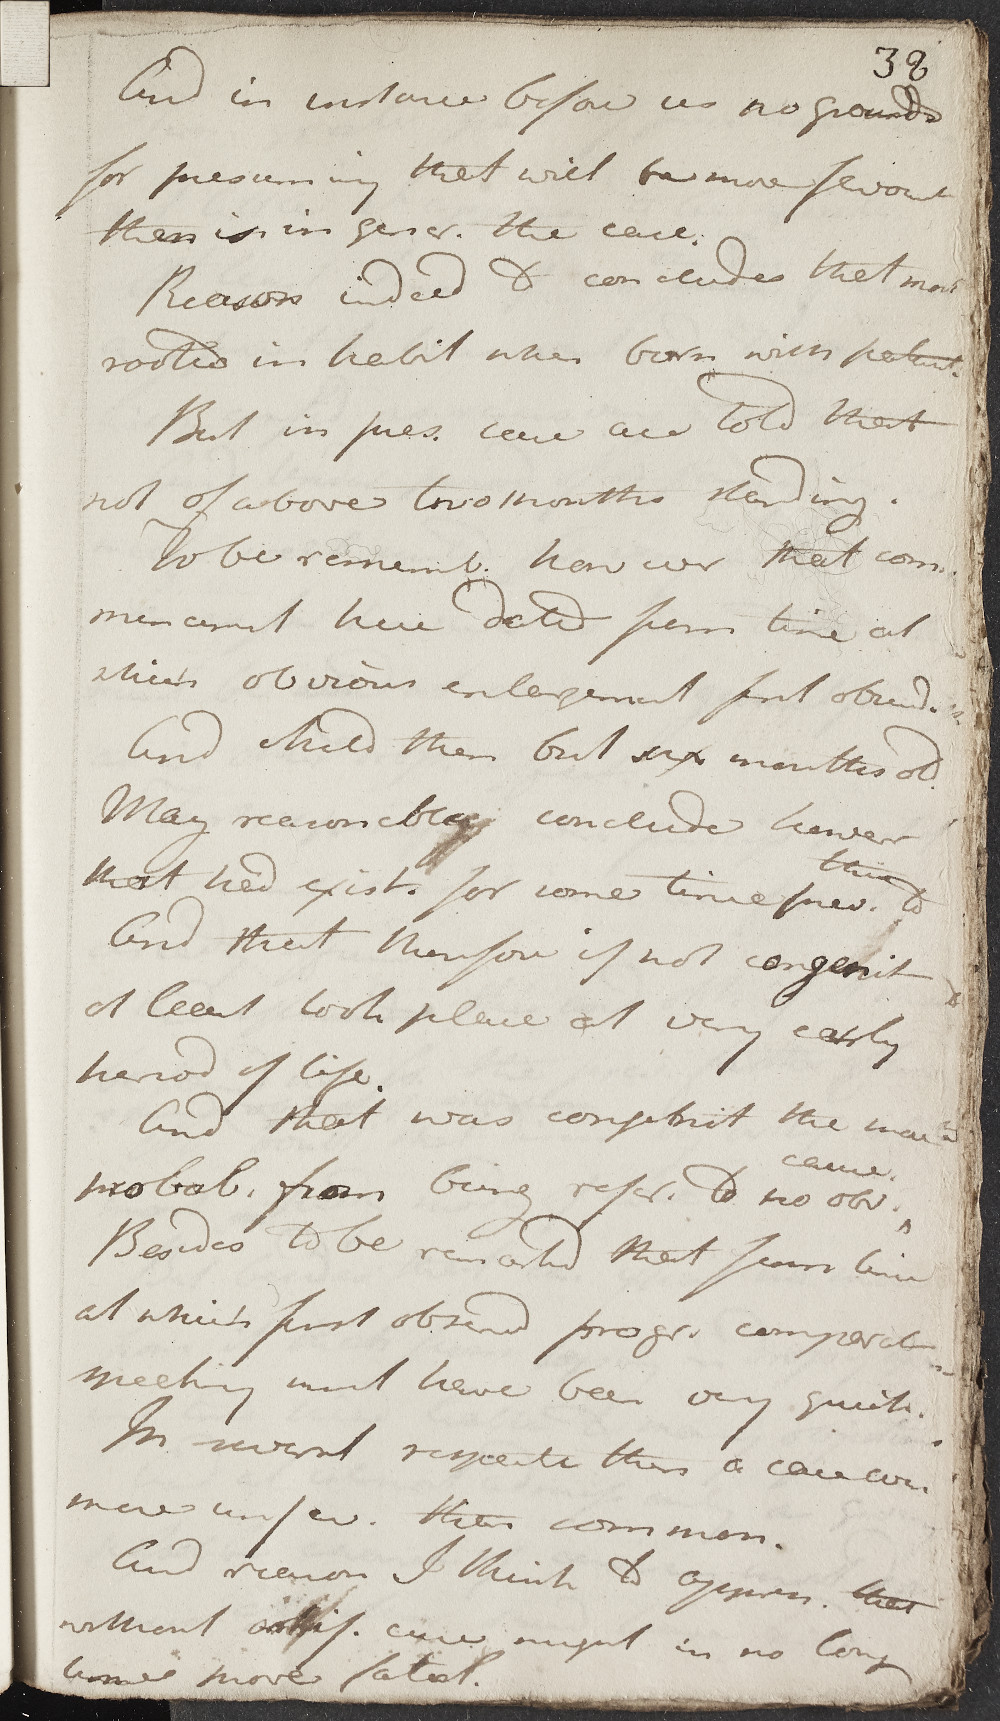 38
And in instance before us no grounds
for presuming that will be more favour
than is in gener. the case.
Reason indeed to conclude that more
rooted in habit when born with patient.
But in pres. case are told that
not of above two months standing.
To be rememb. however that com-
mencement here dated from time at
which obvious enlargement first observd.
And child then but six months old.
May reasonably conclude however
that had exist. for some time prev. to
this
And that therefore if not congenit
at least took place at very early
period of life.
And that was congenit the more
probab. from being refer. to no obv.
cause.
Besides to be remarked that from time
at which first observed progr. comparat
speaking must have been very quick.
In several respects then a case
more unfav. than common.
And reason I think to appreh. that
without artif. case might in no long
time prove fatal.